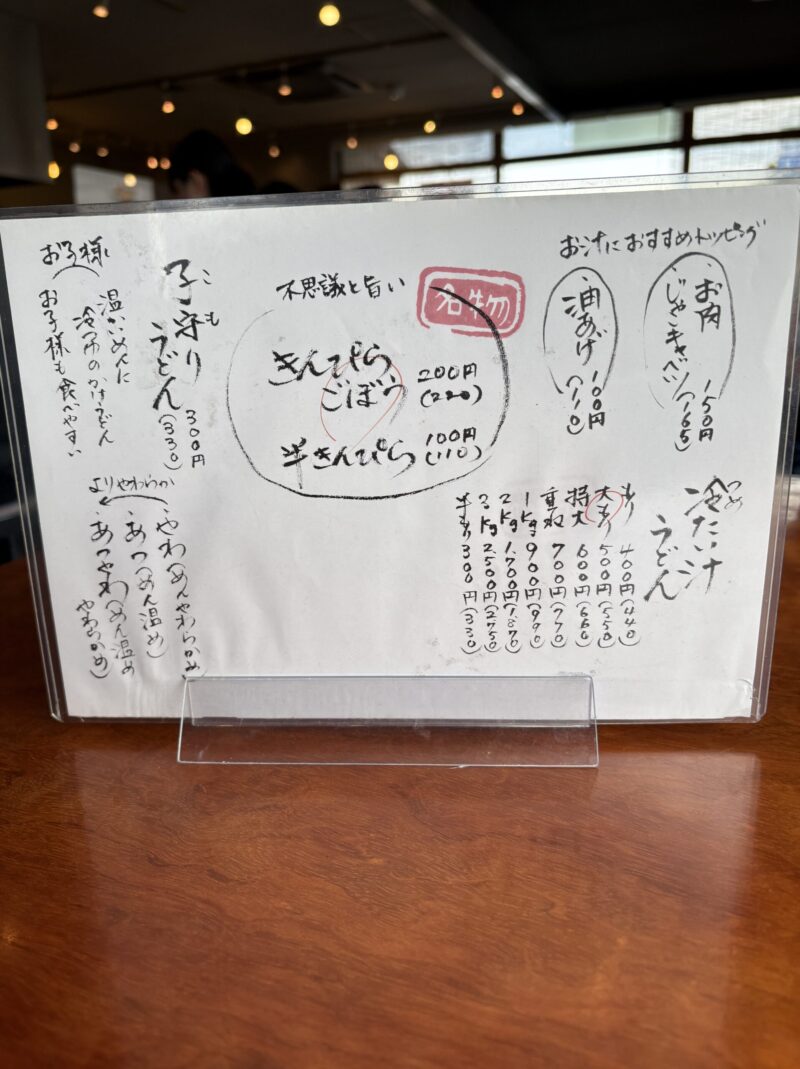 お汁におすすめトッピング
お肉
じゃこキャベツ 150円(165)
油あげ 100円(110)
冷たい汁
つめ
うどん
もり 400円(440)
大もり 500円(550)
特大 600円(660)
重ね 700円(770)
1Kg 900円(990)
2Kg 1,700円(1,870)
3Kg 2,500円(2750)
半もり 300円(330)
名物
不思議と旨い
きんぴら
ごぼう 200円(220)
半きんぴら 100円(110)
子守り
こも
うどん 300円(330)
お子様
温かいめんに
お子様も食べやすい
よりやわらか
やわ(めんやわらかめ)
あつ(めん温め)
あつやわ(めん温め
やわらかめ)